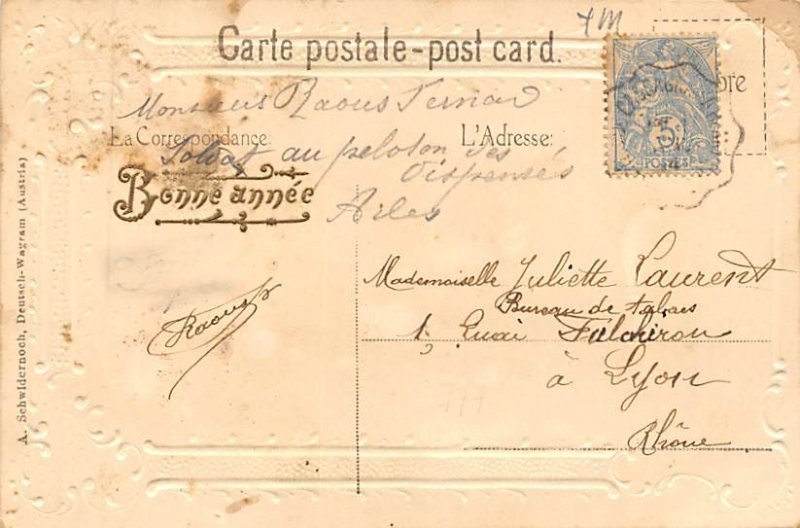 7M
Carte postale-post card.
Monsieur Raoul
La Correspondance: L'Adresse:
Soldat au peloton des
dispensés
Bonne année
Arles
5c
POSTES
Mademoiselle Juliette Laurent
Bureau de tabacs
1, Quai Fulchiron
à Lyon
Rhône
Raoul
A. Schwidernoch, Deutsch-Wagram (Austria)